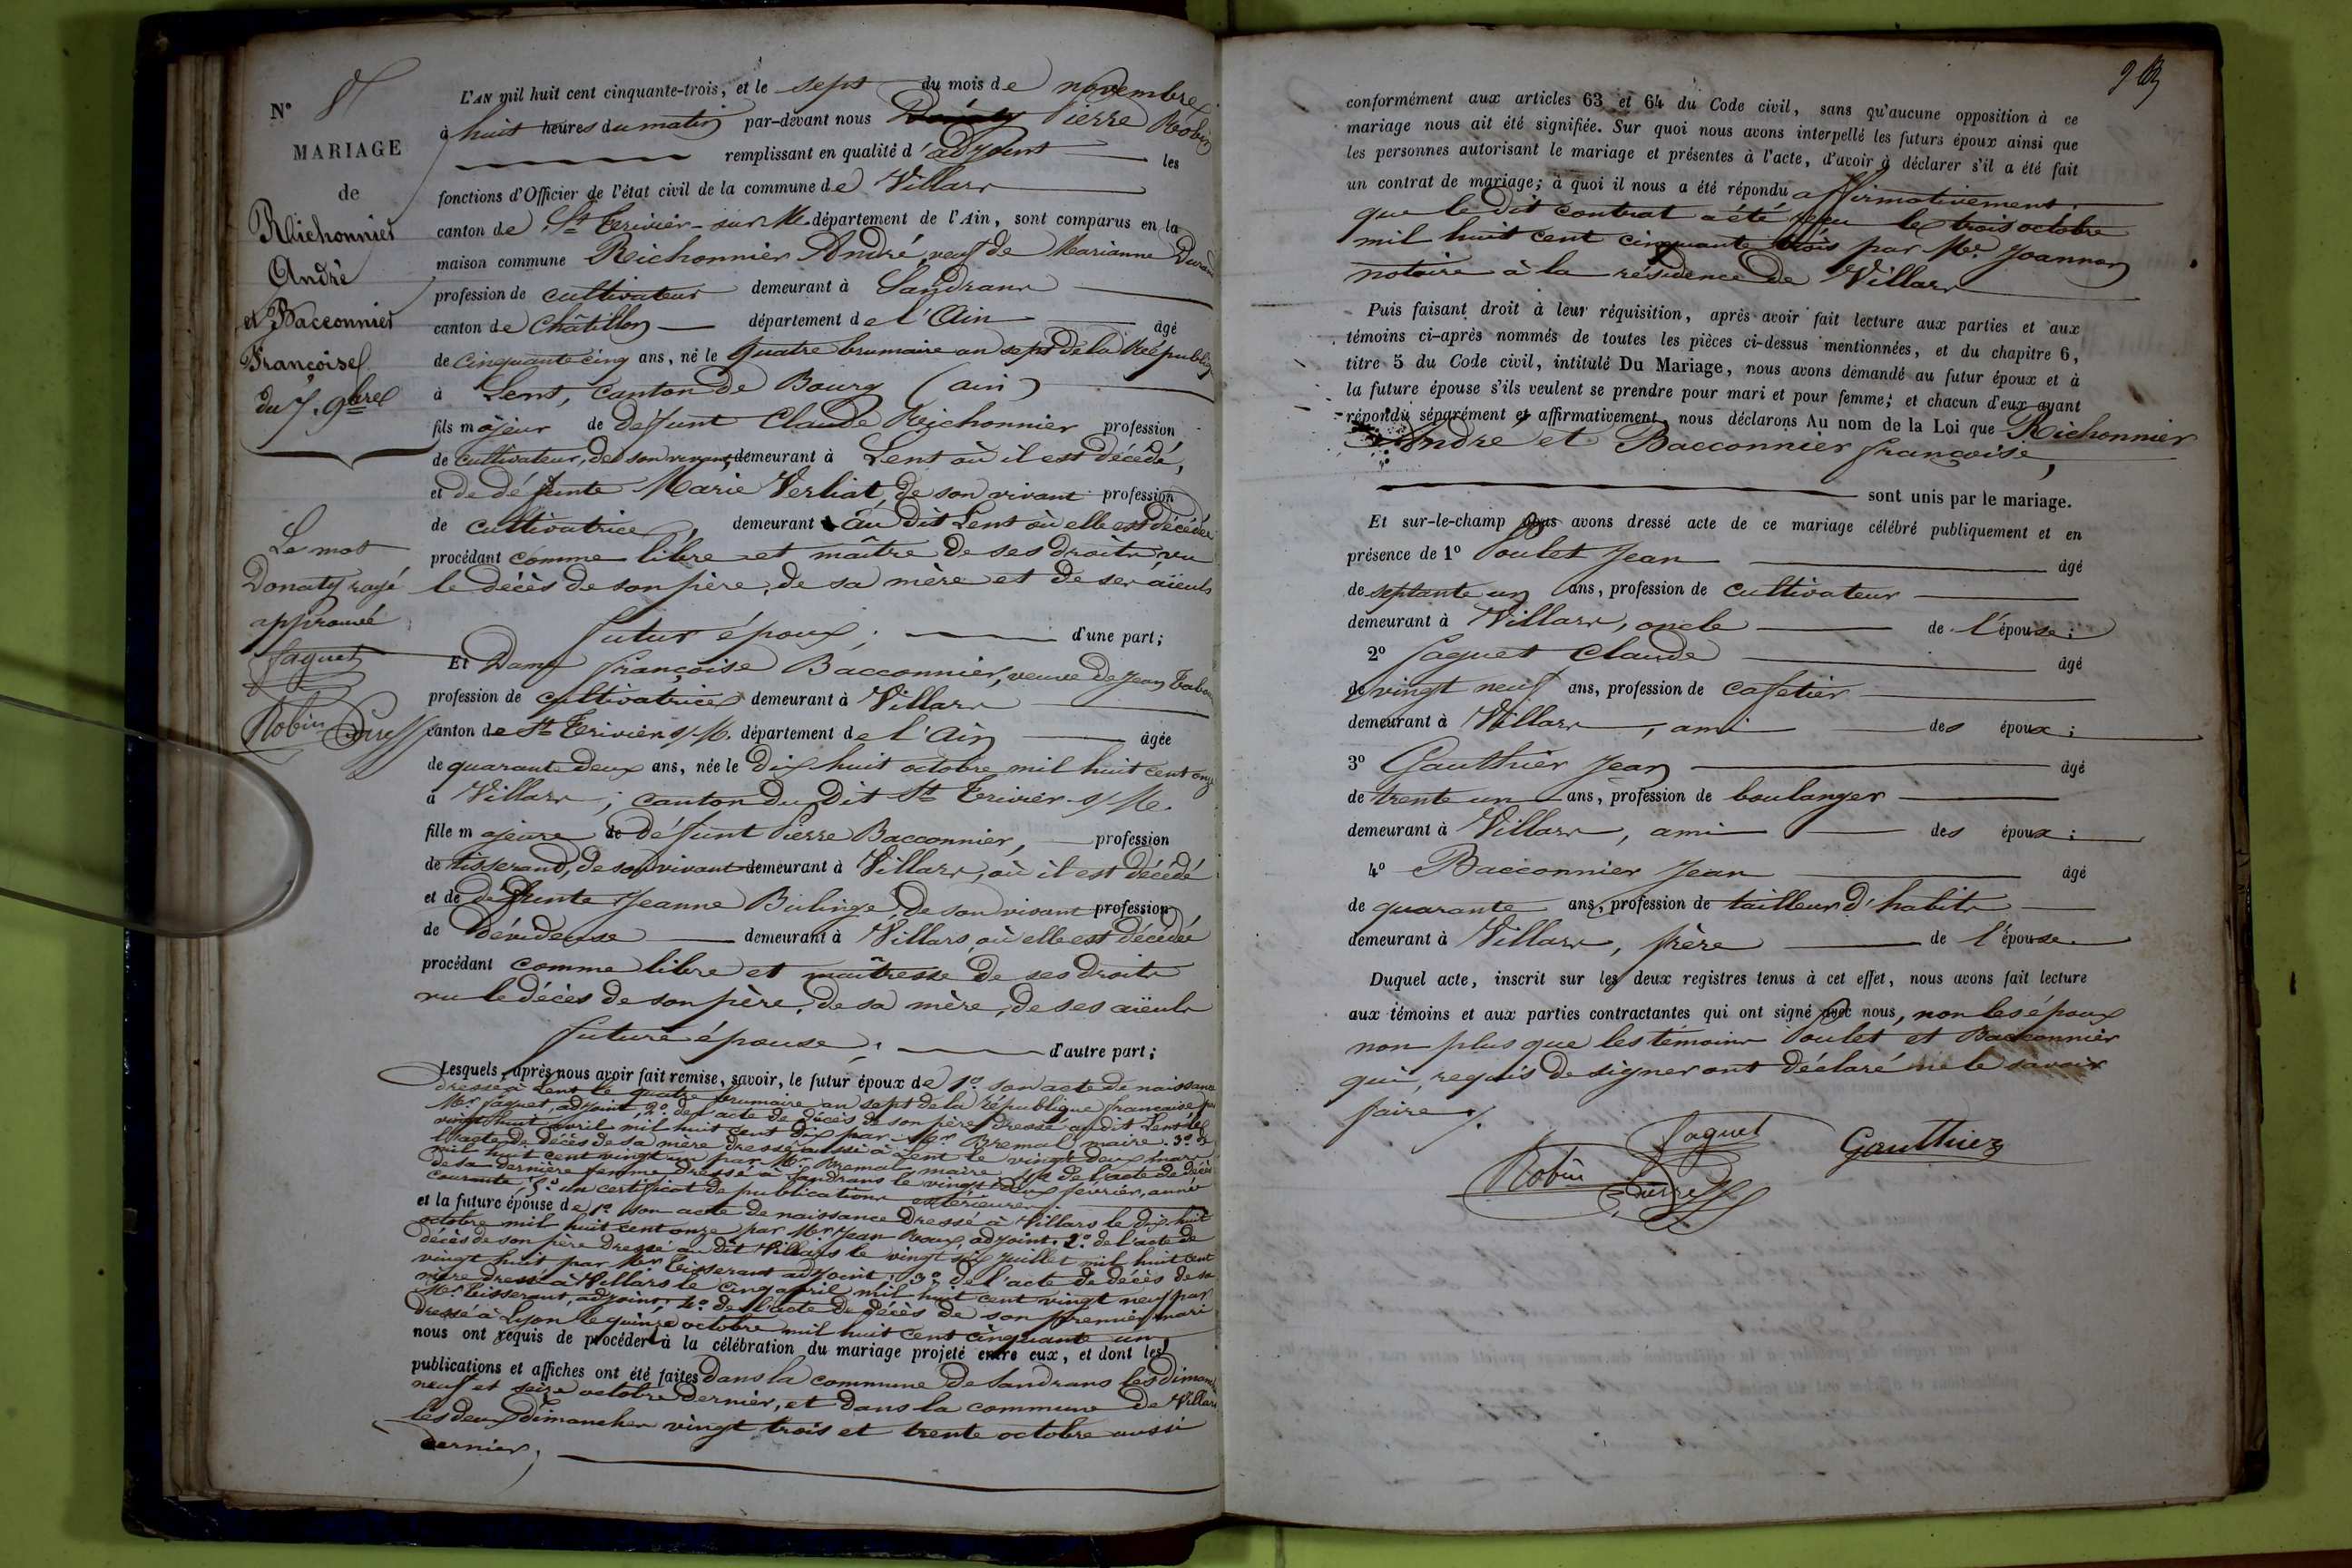 N° 8
MARIAGE
de
Reichonnier
André
et Bacconnier
Françoise
du 7. 9bre
Le mot
Donaty rayé
approuvé
Jaquet
Robin
L'AN mil huit cent cinquante-trois, et le sept du mois de novembre
à huit heures du matin par-devant nous Donaty Pierre Robin
remplissant en qualité d'adjoint les
fonctions d'Officier de l'état civil de la commune de Villars
canton de St Trivier-sur M. département de l'Ain, sont comparus en la
maison commune Reichonnier André, veuf de Marianne Durand
profession de cultivateur demeurant à Sandrans
canton de Châtillon département de l'Ain âgé
de cinquante cinq ans, né le quatre brumaire an sept de la République
à Lent, canton de Bourg (ain)
fils majeur de défunt Claude Reichonnier profession
de cultivateur, de son vivant, demeurant à Lent où il est décédé,
et de défunte Marie Verliat, de son vivant profession
de cultivatrice, demeurant au dit Lent où elle est décédée
procédant comme libre et maître de ses droits vu
le décès de son père, de sa mère et de ses aïeuls
futur époux; d'une part;
Et Dame Françoise Bacconnier, veuve de Jean
profession de cultivatrice demeurant à Villars
canton de St Trivier s/ M. département de l'Ain âgée
de quarante deux ans, née le dix huit octobre mil huit cent onze
à Villars; canton du dit St Trivier s/ M.
fille majeure de défunt Pierre Bacconnier, profession
de tisserand, de son vivant demeurant à Villars, où il est décédé
et de défunte Jeanne Bulinge, de son vivant profession
de dévideuse demeurant à Villars où elle est décédée
procédant comme libre et maîtresse de ses droits
vu le décès de son père, de sa mère, de ses aïeuls
future épouse; d'autre part;
Lesquels, après nous avoir fait remise, savoir, le futur époux de 1° son acte de naissance
dressé à Lent le quatre brumaire an sept de la République française par
Mr Jaquet, adjoint, 2° de l'acte de décès de son père dressé au dit Lent le
vingt huit avril mil huit cent dix par Mr Bremal maire. 3° de
l'acte de décès de sa mère dressé aussi à Lent le vingt deux mars
mil huit cent vingt un par Mr Bremal, maire, 4° de l'acte de décès
de sa dernière femme dressé à Sandrans le vingt deux février, année
courante, 5° un certificat de publications extérieures
et la future épouse de 1° son acte de naissance dressé à Villars le dix huit
octobre mil huit cent onze par Mr Jean Roux, adjoint. 2° de l'acte de
décès de son père dressé au dit Villars le vingt six juillet mil huit cent
vingt huit par Mr Teisserant adjoint; 3° de l'acte de décès de sa
mère dressé à Villars le cinq avril mil huit cent vingt neuf par
Mr Teisserant, adjoint, 4° de l'acte de décès de son premier mari
dressé à Lyon le quinze octobre mil huit cent cinquante un,
nous ont requis de procéder à la célébration du mariage projeté entre eux, et dont les
publications et affiches ont été faites dans la commune de Sandrans les dimanches
neuf et seize octobre dernier, et dans la commune de Villars
les deux dimanches vingt trois et trente octobre aussi
dernier;
conformément aux articles 63 et 64 du Code civil, sans qu'aucune opposition à ce
mariage nous ait été signifiée. Sur quoi nous avons interpellé les futurs époux ainsi que
les personnes autorisant le mariage et présentes à l'acte, d'avoir à déclarer s'il a été fait
un contrat de mariage; à quoi il nous a été répondu affirmativement.
que le dit contrat a été reçu le trois octobre
mil huit cent cinquante trois par Me Joannon
notaire à la résidence de Villars
Puis faisant droit à leur réquisition, après avoir fait lecture aux parties et aux
témoins ci-après nommés de toutes les pièces ci-dessus mentionnées, et du chapitre 6,
titre 5 du Code civil, intitulé Du Mariage, nous avons demandé au futur époux et à
la future épouse s'ils veulent se prendre pour mari et pour femme; et chacun d'eux ayant
répondu séparément et affirmativement, nous déclarons Au nom de la Loi que Richonnier
André et Bacconnier françoise,
sont unis par le mariage.
Et sur-le-champ nous avons dressé acte de ce mariage célébré publiquement et en
présence de 1° Poulet Jean âgé
de septante un ans, profession de cultivateur
demeurant à Villars, oncle de l'épouse;
2° Jaquet Claude âgé
de vingt neuf ans, profession de cafetier
demeurant à Villars, ami des époux;
3° Gauthier Jean âgé
de trente un ans, profession de boulanger
demeurant à Villars, ami des époux;
4° Bacconnier Jean âgé
de quarante ans, profession de tailleur d'habits
demeurant à Villars, frère de l'épouse.
Duquel acte, inscrit sur les deux registres tenus à cet effet, nous avons fait lecture
aux témoins et aux parties contractantes qui ont signé avec nous, non les époux
non plus que les témoins Poulet et Bacconnier
qui, requis de signer ont déclaré ne le savoir
faire ./.
Jaquet
Gauthier
Robin